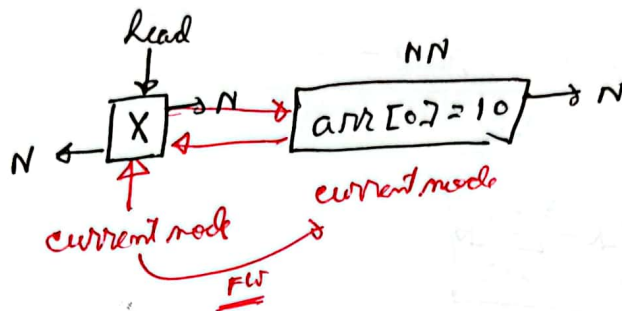 Head
NN
N
X
N
arr[0]=10
N
current node
current node
FW